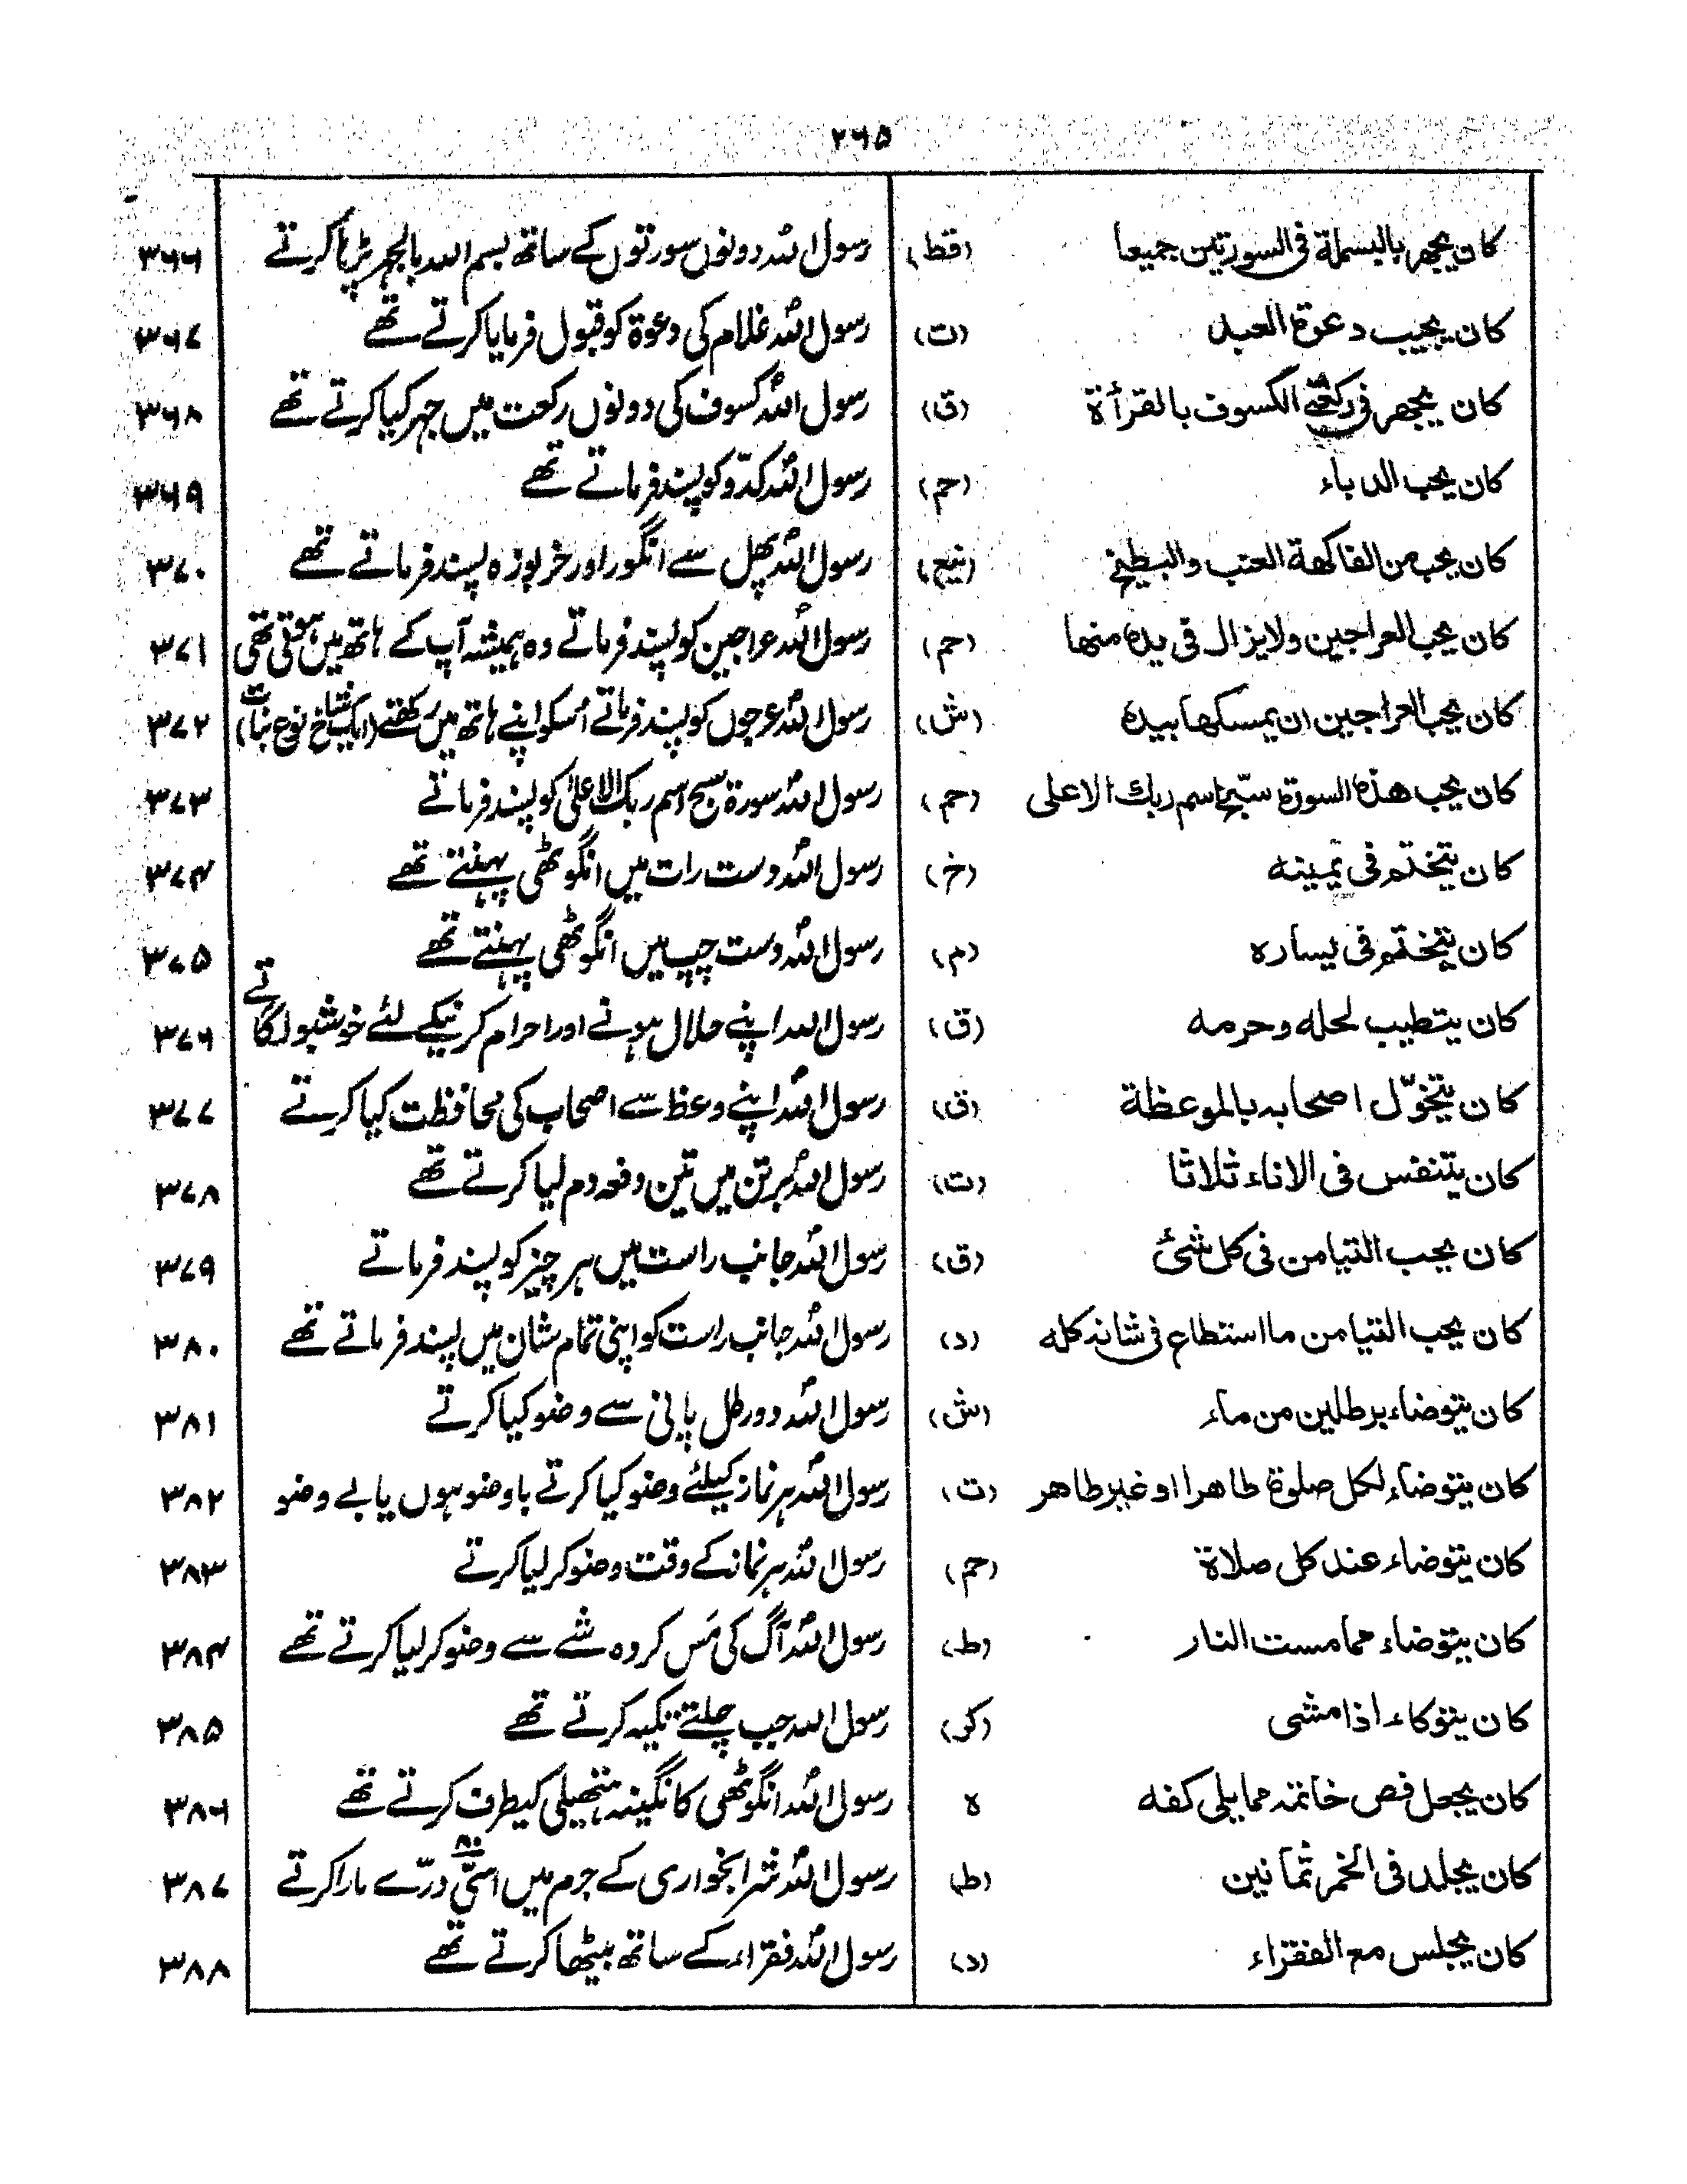 ۲۶۵
کان یجھر بالبسملة فی السورتین جمیعا (قط) رسول اللہ دونوں سورتوں کے ساتھ بسم اللہ بالجہر پڑہا کرتے ۳۶۶
کان یجیب دعوة العبد (ت) رسول اللہ غلام کی دعوۃ کو قبول فرمایا کرتے تھے ۳۶۷
کان یجھر فی رکعتی الکسوف بالقرأة (ق) رسول اللہ کسوف کی دونوں رکعت میں جہر کیا کرتے تھے ۳۶۸
کان یحب الدباء (حم) رسول اللہ کدّو کو پسند فرماتے تھے ۳۶۹
کان یحب من الفاکھة العنب والبطیخ (نیح) رسول اللہ پھل سے انگور اور خربوزہ پسند فرماتے تھے ۳۷۰
کان یحب العراجین ولایزال فی یدہ منھا (حم) رسول اللہ عراجین کو پسند فرماتے وہ ہمیشہ آپ کے ہاتھ میں ہوتی تھی ۳۷۱
کان یحب العراجین ان یمسکھا بیدہ (ش) رسول اللہ عرجوں کو پسند فرماتے اُسکو اپنے ہاتھ میں رکھتے (ایک شاخ نوع نباتات) ۳۷۲
کان یحب ھذہ السورة سبّح اسم ربك الاعلی (حم) رسول اللہ سورۃ سبح اسم ربک الاعلیٰ کو پسند فرماتے ۳۷۳
کان یتختم فی یمینه (خ) رسول اللہ دست رات میں انگوٹھی پہنتے تھے ۳۷۴
کان یتختم فی یسارہ (م) رسول اللہ دست چپ میں انگوٹھی پہنتے تھے ۳۷۵
کان یتطیب لحله وحرمه (ق) رسول اللہ اپنے حلال ہونے اور احرام کرنیکے لئے خوشبو لگاتے ۳۷۶
کان یتخوّل اصحابه بالموعظة (ق) رسول اللہ اپنے وعظ سے اصحاب کی محافظت کیا کرتے ۳۷۷
کان یتنفس فی الاناء ثلاثا (ت) رسول اللہ برتن میں تین دفعہ دم لیا کرتے تھے ۳۷۸
کان یحب التیامن فی کل شئ (ق) رسول اللہ جانب راست میں ہر چیز کو پسند فرماتے ۳۷۹
کان یحب التیامن ما استطاع فی شانه کله (د) رسول اللہ جانب راست کو اپنی تمام شان میں پسند فرماتے تھے ۳۸۰
کان یتوضاء برطلین من ماء (ش) رسول اللہ دو رطل پانی سے وضو کیا کرتے ۳۸۱
کان یتوضاء لکل صلوة طاھرا او غیر طاھر (ت) رسول اللہ ہر نماز کیلئے وضو کیا کرتے باوضو ہوں یا بے وضو ۳۸۲
کان یتوضاء عند کل صلاة (حم) رسول اللہ ہر نماز کے وقت وضو کر لیا کرتے ۳۸۳
کان یتوضاء مما مست النار (ط) رسول اللہ آگ کی مَس کردہ شے سے وضو کر لیا کرتے تھے ۳۸۴
کان یتوکاء اذا مشی (کر) رسول اللہ جب چلتے تکیہ کرتے تھے ۳۸۵
کان یجعل فص خاتمه مما یلی کفه ہ رسول اللہ انگوٹھی کا نگینہ ہتھیلی کیطرف کرتے تھے ۳۸۶
کان یجلد فی الخمر ثمانین (ط) رسول اللہ شرابخواری کے جرم میں اسّی ۸۰ درّے مارا کرتے ۳۸۷
کان یجلس مع الفقراء (د) رسول اللہ فقراء کے ساتھ بیٹھا کرتے تھے ۳۸۸